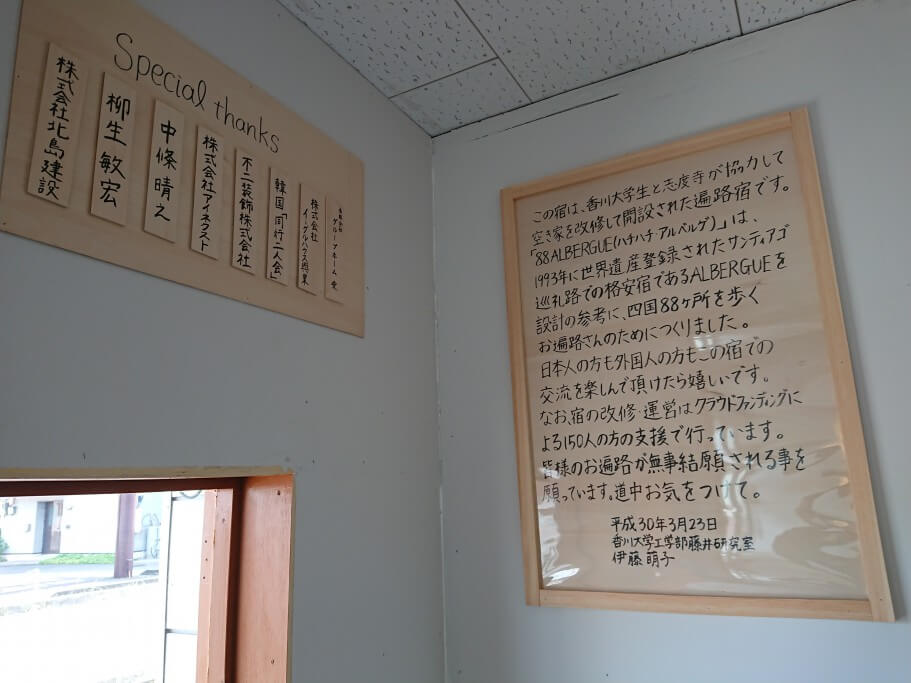 Special thanks
株式会社北島建設
柳生敏宏
中條晴之
株式会社アイネクスト
不二装飾株式会社
韓国「同行二人会」
株式会社
イーグルハウス興業
グループホーム 愛
この宿は、香川大学生と志度寺が協力して
空き家を改修して開設された遍路宿です。
「88 ALBERGUE(ハチハチ・アルベルゲ)」は、
1993年に世界遺産登録されたサンティアゴ
巡礼路での格安宿であるALBERGUEを
設計の参考に、四国88ヶ所を歩く
お遍路さんのためにつくりました。
日本人の方も外国人の方もこの宿での
交流を楽しんで頂けたら嬉しいです。
なお、宿の改修・運営はクラウドファンディングに
よる150人の方の支援で行っています。
皆様のお遍路が無事結願される事を
願っています。道中お気をつけて。
平成30年3月23日
香川大学工学部藤井研究室
伊藤萌子